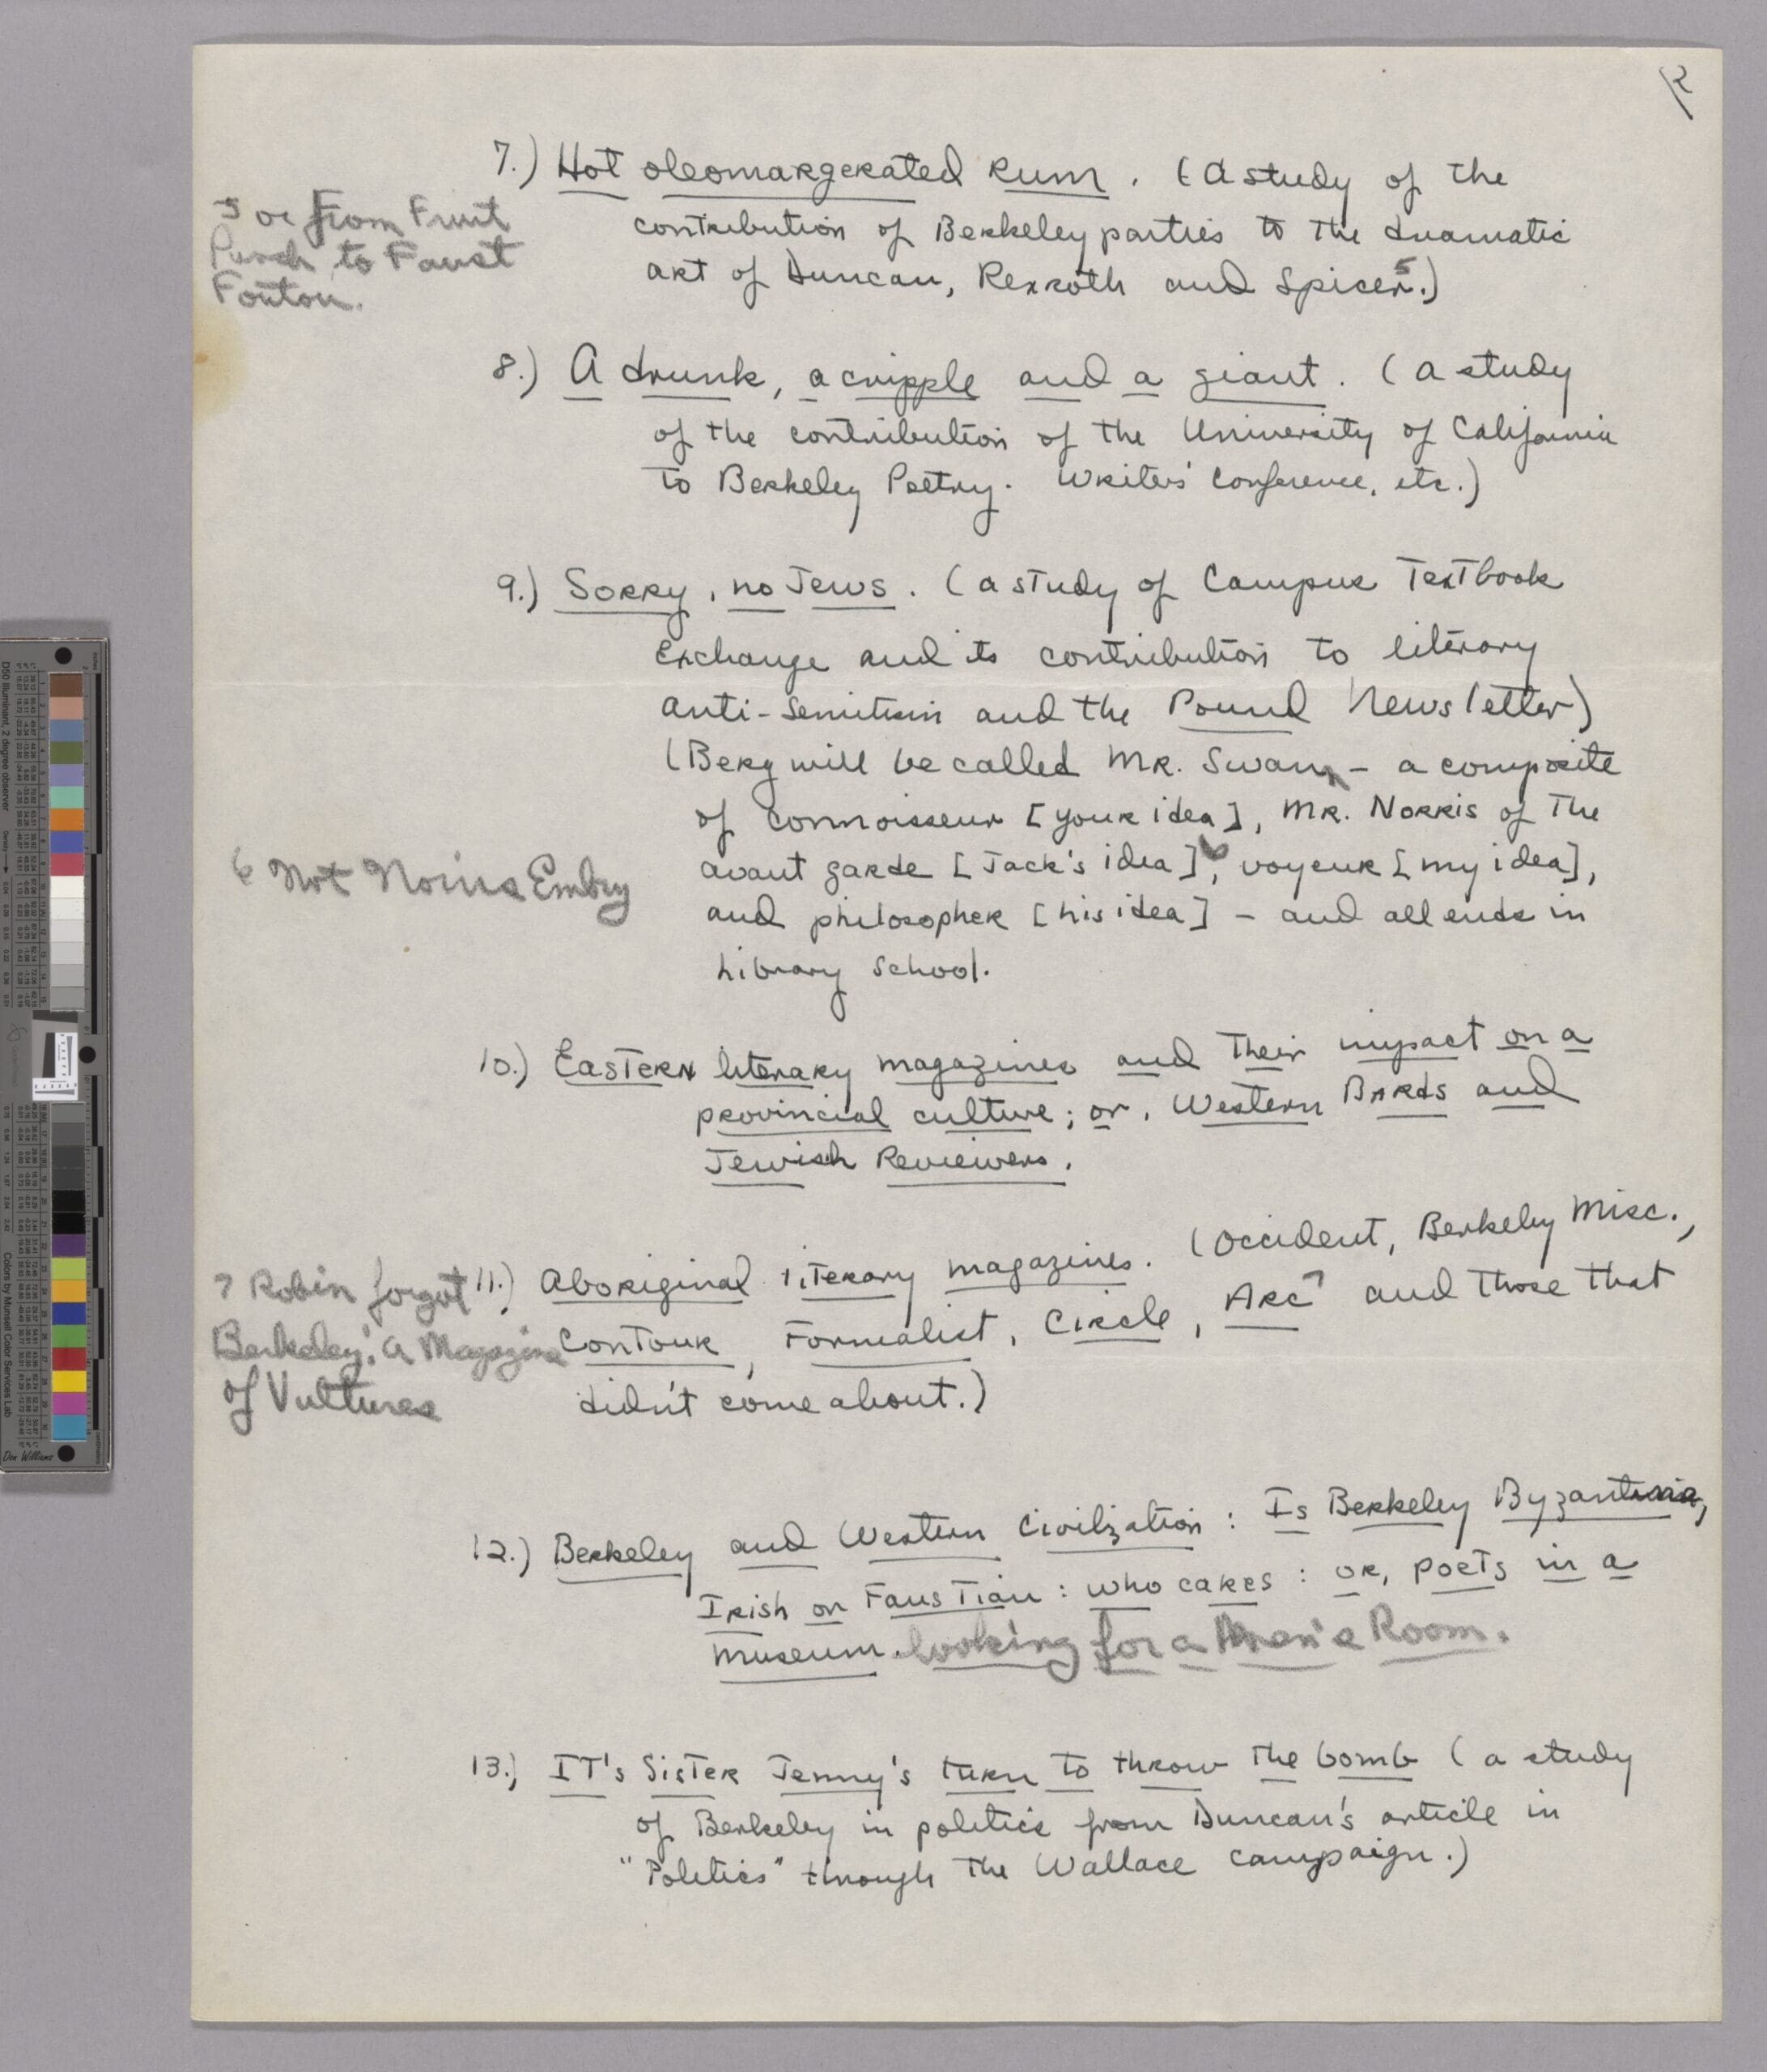 2
7.) Hot oleomargerated Rum. (A study of the
contribution of Berkeley parties to the dramatic
art of Duncan, Rexroth and Spicer.5)
5 or from Fruit
Punch to Faust
8.) A drunk, a cripple and a giant. (a study
of the contribution of the University of California
to Berkeley Poetry. Writers' Conference, etc.)
9.) Sorry, no Jews. (a study of Campus Textbook
Exchange and its contribution to literary
anti-Semitism and the Pound Newsletter)
(Berg will be called Mr. Swann – a composite
of connoisseur [your idea], Mr. Norris of the
avant garde [Jack's idea]6, voyeur [my idea],
and philosopher [his idea] – and all ends in
Library School.
6 Not Norris Embry
10.) Eastern literary magazines and their impact on a
provincial culture; or, Western Bards and
Jewish Reviewers.
11.) Aboriginal literary magazines. (Occident, Berkeley Misc.,
Contour, Formalist, Circle, Arc7 and those that
didn't come about.)
7 Robin forgot
Berkeley: A Magazine
of Vultures
12.) Berkeley and Western Civilization: Is Berkeley Byzantine,
Irish or Faustian: who cares: or, poets in a
museum. looking for a Men's Room.
13.) It's Sister Jenny's turn to throw the bomb (a study
of Berkeley in politics from Duncan's article in
"Politics" through the Wallace campaign.)